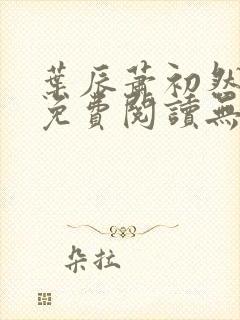 葉辰蕭初然
免費閱讀無
朵拉